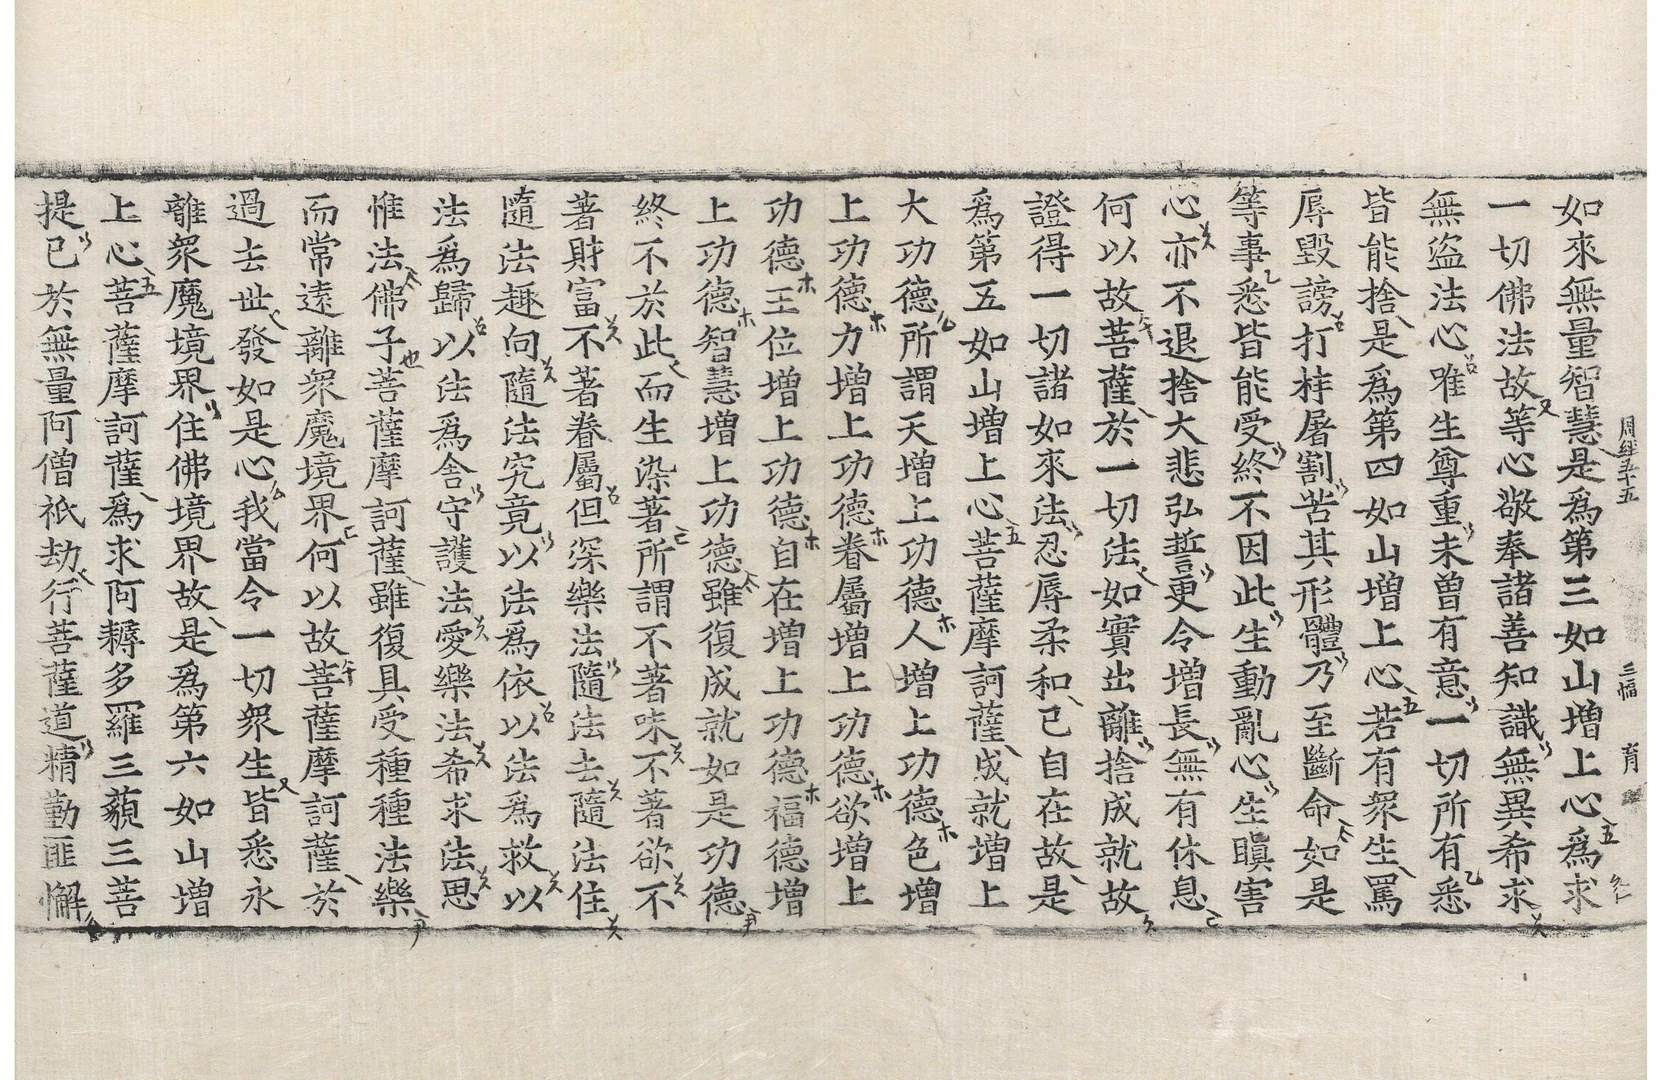 周經五十五 三幅 育
如來無量智慧是爲第三如山增上心爲求
一切佛法故等心敬奉諸善知識無異希求
無盜法心唯生尊重未曾有意一切所有悉
皆能捨是爲第四如山增上心若有衆生罵
辱毀謗打棒屠割苦其形體乃至斷命如是
等事悉皆能受終不因此生動亂心生瞋害
心亦不退捨大悲弘誓更令增長無有休息
何以故菩薩於一切法如實出離捨成就故
證得一切諸如來法忍辱柔和已自在故是
爲第五如山增上心菩薩摩訶薩成就增上
大功德所謂天增上功德人增上功德色增
上功德力增上功德眷屬增上功德欲增上
功德王位增上功德自在增上功德福德增
上功德智慧增上功德雖復成就如是功德
終不於此而生染著所謂不著味不著欲不
著財富不著眷屬但深樂法隨法去隨法住
隨法趣向隨法究竟以法爲依以法爲救以
法爲歸以法爲舍守護法愛樂法希求法思
惟法佛子菩薩摩訶薩雖復具受種種法樂
而常遠離衆魔境界何以故菩薩摩訶薩於
過去世發如是心我當令一切衆生皆悉永
離衆魔境界住佛境界故是爲第六如山增
上心菩薩摩訶薩爲求阿耨多羅三藐三菩
提已於無量阿僧祇劫行菩薩道精勤匪懈